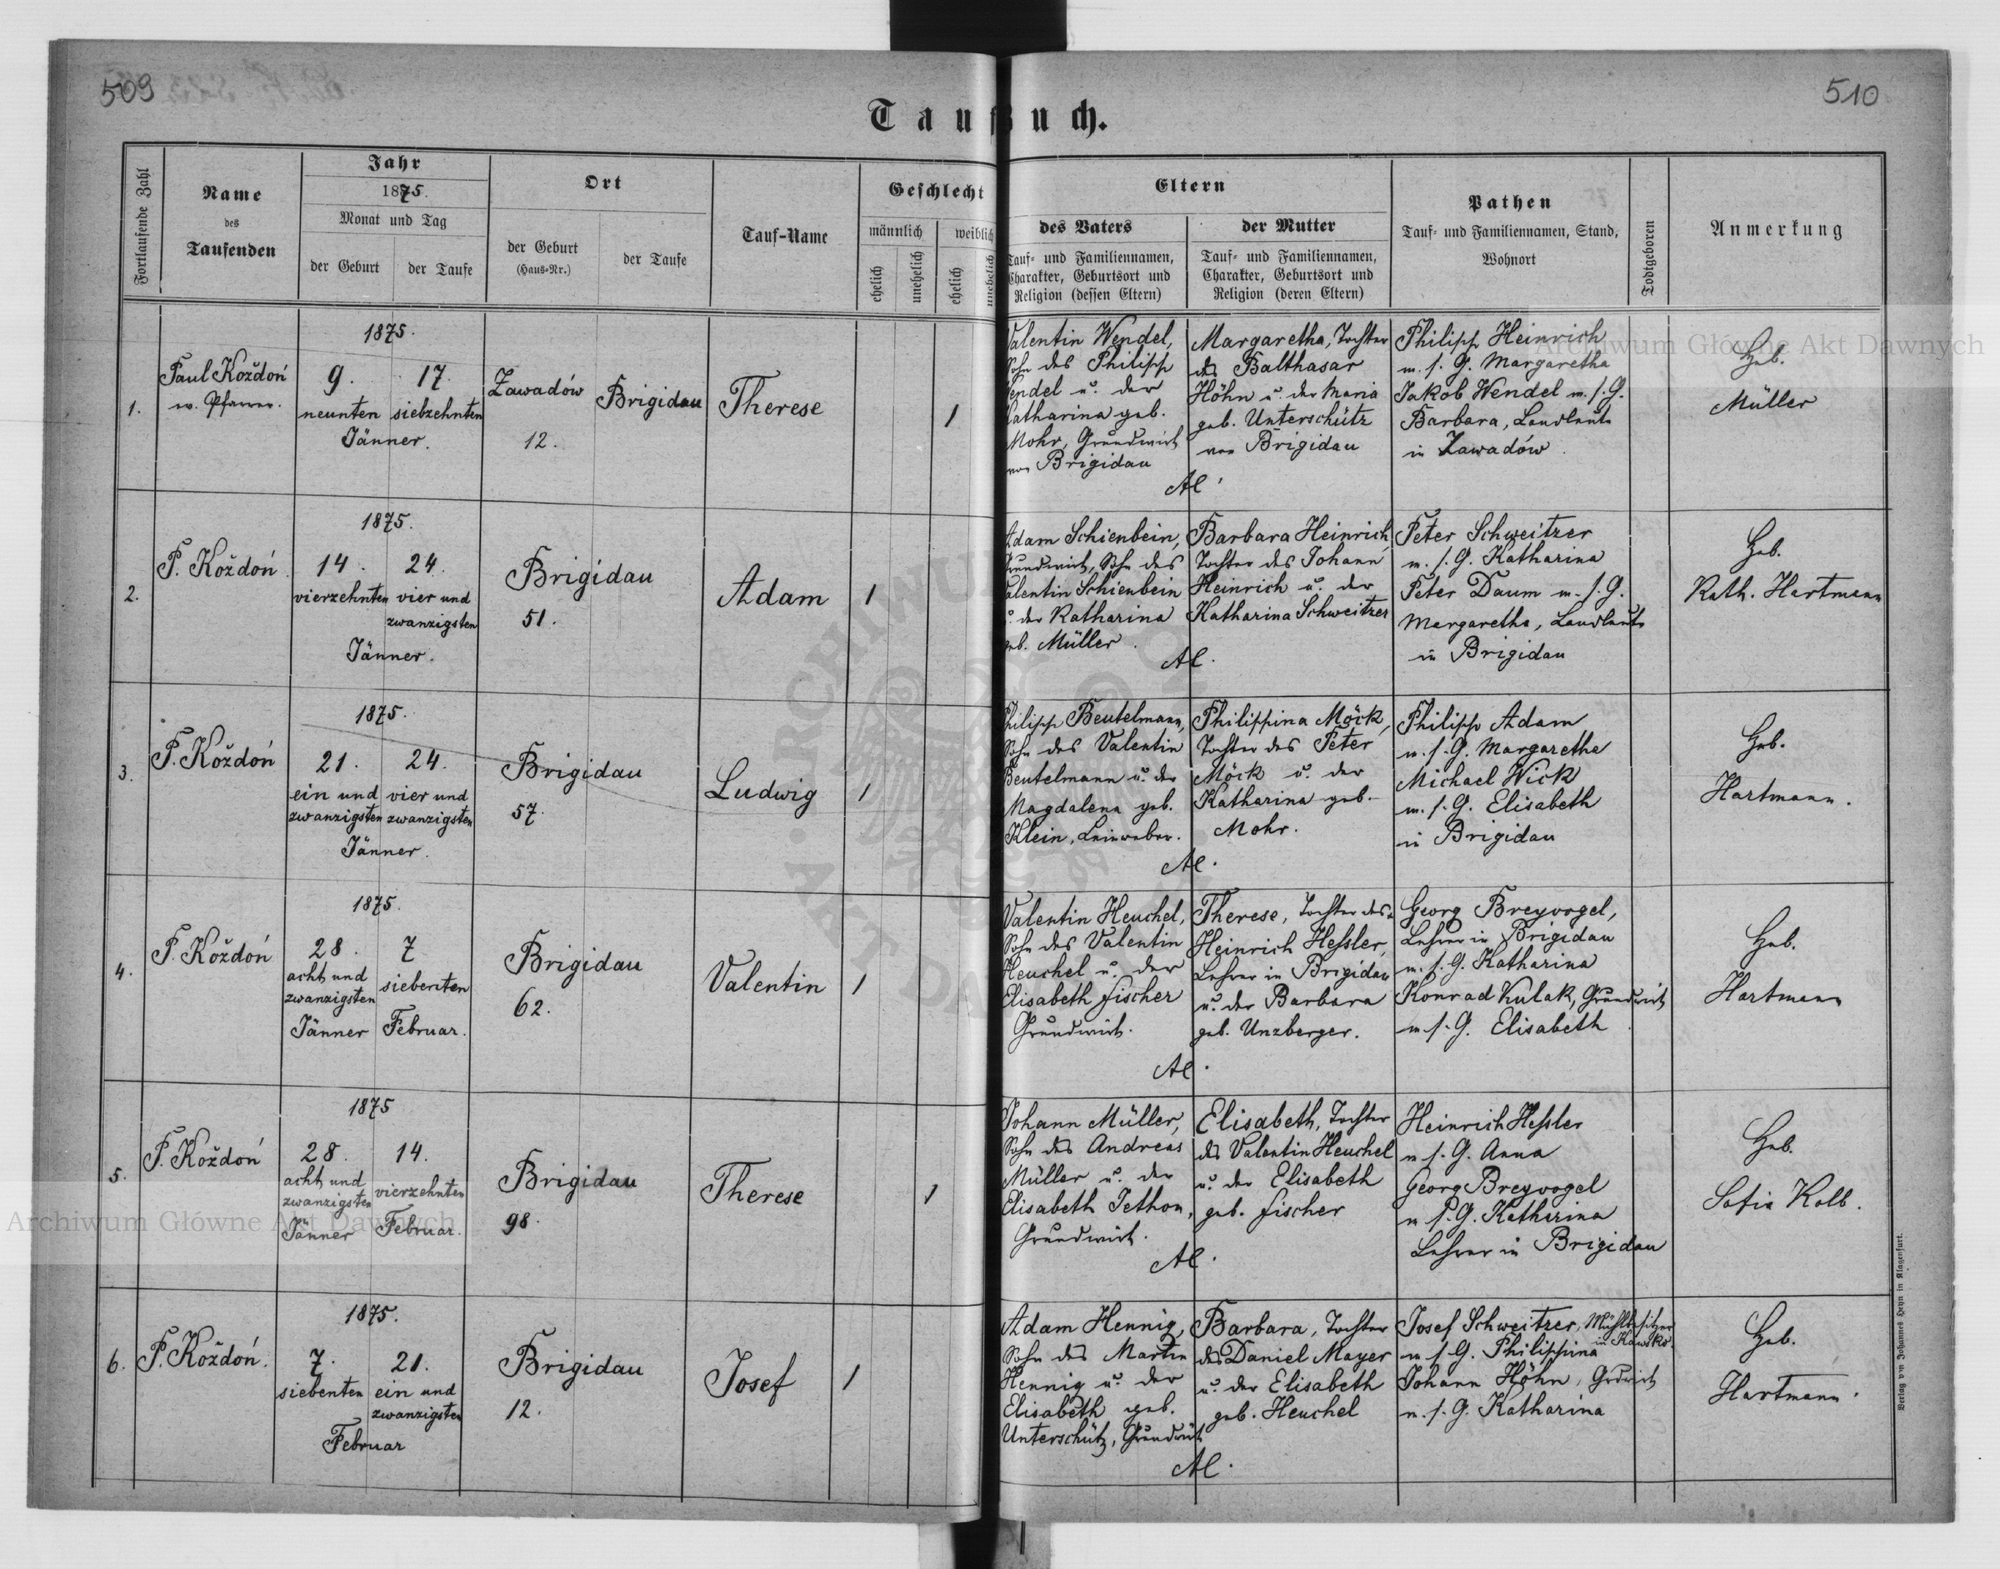 509
510
Taufbuch.
Fortlaufende Zahl
Name
des
Taufenden
Jahr
1875.
Monat und Tag
der Geburt
der Taufe
Ort
der Geburt
(Haus-Nr.)
der Taufe
Tauf-Name
Geschlecht
männlich
weiblich
ehelich
unehelich
ehelich
unehelich
Eltern
des Vaters
Tauf- und Familiennamen,
Charakter, Geburtsort und
Religion (dessen Eltern)
der Mutter
Tauf- und Familiennamen,
Charakter, Geburtsort und
Religion (deren Eltern)
Pathen
Tauf- und Familiennamen, Stand,
Wohnort
Todtgeboren
Anmerkung
1.
Paul Koždoń
w. Pfarrer.
1875.
9.
neunten
17.
siebzehnten
Jänner.
Zawadów
12.
Brigidau
Therese
1
Valentin Wendel,
Sohn des Philipp
Wendel u. der
Katharina geb.
Mohr, Grundwirt
von Brigidau
Margaretha, Tochter
des Balthasar
Höhn u. der Maria
geb. Unterschütz
von Brigidau
AC.
Philipp Heinrich
m. s. G. Margaretha
Jakob Wendel m. s. G.
Barbara, Landleute
in Zawadów.
Heb.
Müller
2.
P. Koždoń.
1875.
14.
vierzehnten
24.
vier und
zwanzigsten
Jänner.
Brigidau
51.
Adam
1
Adam Schienbein,
Grundwirt, Sohn des
Valentin Schienbein
u. der Katharina
geb. Müller.
Barbara Heinrich,
Tochter des Johann
Heinrich u. der
Katharina Schweitzer
AC.
Peter Schweitzer
m. s. G. Katharina
Peter Daum m. s. G.
Margaretha, Landleute
in Brigidau
Heb.
Kath. Hartmann
3.
P. Koždoń
1875.
21.
ein und
zwanzigsten
24.
vier und
zwanzigsten
Jänner.
Brigidau
57.
Ludwig
1
Philipp Beutelmann,
Sohn des Valentin
Beutelmann u. der
Magdalena geb.
Klein, Leinweber.
Philippina Möck,
Tochter des Peter
Möck u. der
Katharina geb.
Mohr.
AC.
Philipp Adam
m. s. G. Margarethe
Michael Wick
m. s. G. Elisabeth
in Brigidau
Heb.
Hartmann.
4.
P. Koždoń
1875.
28.
acht und
zwanzigsten
Jänner
7
siebenten
Februar.
Brigidau
62.
Valentin
1
Valentin Heuchel,
Sohn des Valentin
Heuchel u. der
Elisabeth Fischer
Grundwirt.
Therese, Tochter des
Heinrich Hessler,
Lehrer in Brigidau
u. der Barbara
geb. Unzberger.
AC.
Georg Breyvogel,
Lehrer in Brigidau
m. s. G. Katharina
Konrad Kulak, Grundwirt
m. s. G. Elisabeth.
Heb.
Hartmann
5.
P. Koždoń
1875
28.
acht und
zwanzigsten
Jänner
14.
vierzehnten
Februar.
Brigidau
98.
Therese
1
Johann Müller,
Sohn des Andreas
Müller u. der
Elisabeth Jethon,
Grundwirt.
Elisabeth, Tochter
des Valentin Heuchel
u. der Elisabeth
geb. Fischer
AC.
Heinrich Hessler
m. s. G. Anna
Georg Breyvogel
m. s. G. Katharina
Lehrer in Brigidau
Heb.
Sofia Kolb.
6.
P. Koždoń.
1875.
7.
siebenten
21.
ein und
zwanzigsten
Februar
Brigidau
12.
Josef
1
Adam Hennig,
Sohn des Martin
Hennig u. der
Elisabeth geb.
Unterschütz, Grundwirt
Barbara, Tochter
des Daniel Mayer
u. der Elisabeth
geb. Heuchel
AC.
Josef Schweitzer, Mühlbesitzer
in Kawsko
m. s. G. Philippina
Johann Höhn, Grdwirt
m. s. G. Katharina
Heb.
Hartmann.
Verlag von Johannes Heyn in Klagenfurt.
Archiwum Główne Akt Dawnych
Archiwum Główne Akt Dawnych